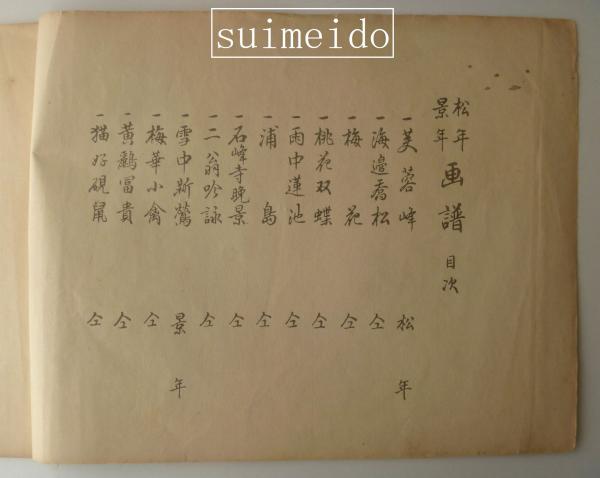 suimeido
松年
景年
画譜 目次
一 芙蓉峰 松年
一 海邉喬松 仝
一 梅花 仝
一 桃花双蝶 仝
一 雨中蓮池 仝
一 浦島 仝
一 石峰寺晩景 仝
一 二翁吟詠 仝
一 雪中新鶯 景年
一 梅華小禽 仝
一 黄鸝冨貴 仝
一 猫好硯鼠 仝